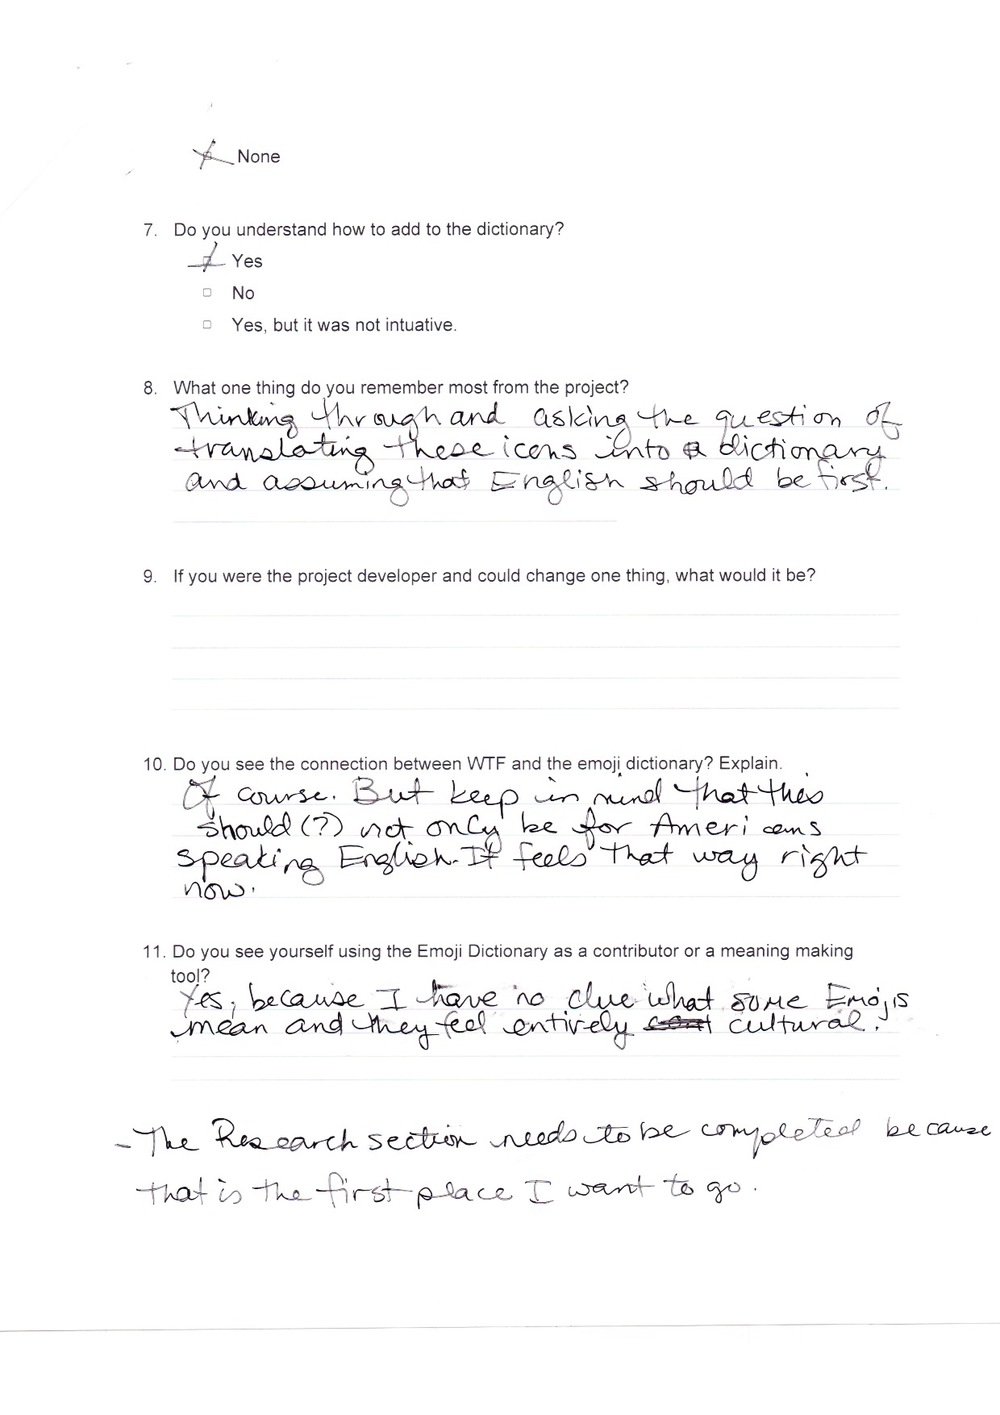 None
7. Do you understand how to add to the dictionary?
Yes
No
Yes, but it was not intuative.
8. What one thing do you remember most from the project?
Thinking through and asking the question of
translating these icons into a dictionary
and assuming that English should be first.
9. If you were the project developer and could change one thing, what would it be?
10. Do you see the connection between WTF and the emoji dictionary? Explain.
Of course. But keep in mind that this
should (?) not only be for Americans
speaking English. It feels that way right
now.
11. Do you see yourself using the Emoji Dictionary as a contributor or a meaning making
tool?
Yes, because I have no clue what some Emojis
mean and they feel entirely cultural.
- The Research section needs to be completed because
that is the first place I want to go.